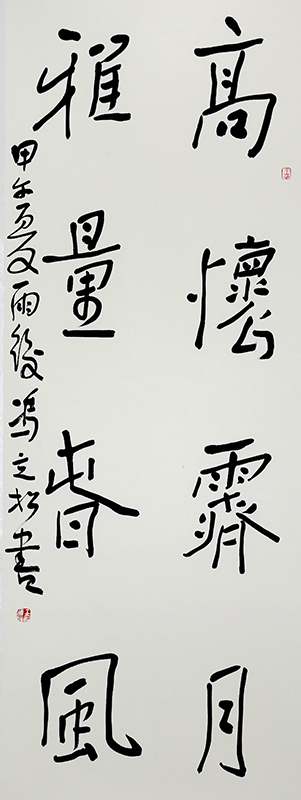 高懷霽月
雅量春風
甲午夏又雨後馮立松書